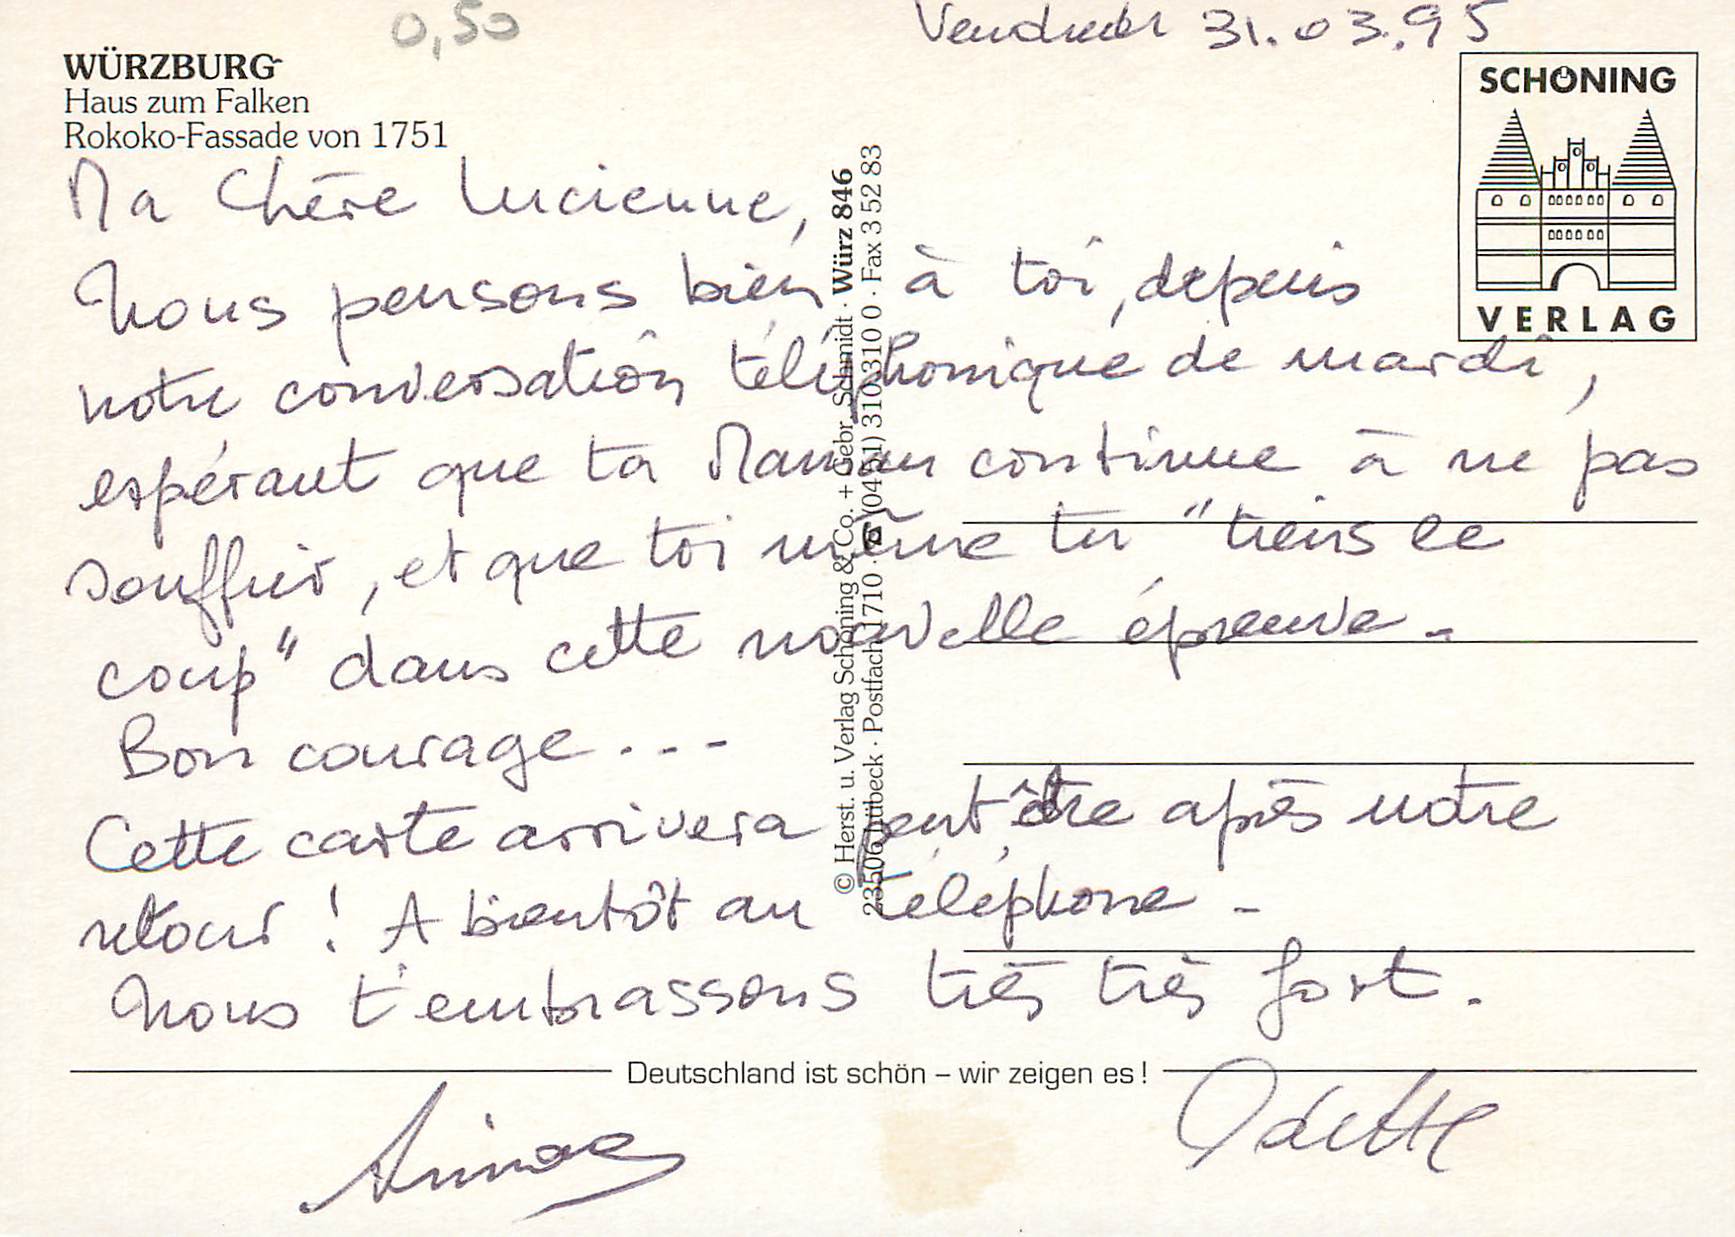 0,50
Vendredi 31.03.95
WÜRZBURG
Haus zum Falken
Rokoko-Fassade von 1751
SCHÖNING
VERLAG
Ma Chère Lucienne,
Nous pensons bien à toi, depuis
notre conversation téléphonique de mardi,
espérant que ta Maman continue à ne pas
souffrir, et que toi même tu "tiens le
coup" dans cette nouvelle épreuve.
Bon courage...
Cette carte arrivera peut être après notre
retour ! A bientôt au téléphone.
Nous t'embrassons très très fort.
© Herst. u. Verlag Schöning & Co. + Gebr. Schmidt · Würz 846
23506 Lübeck · Postfach 1710 · ☎ (0451) 310 310 0 · Fax 3 52 83
Deutschland ist schön – wir zeigen es !
Odette